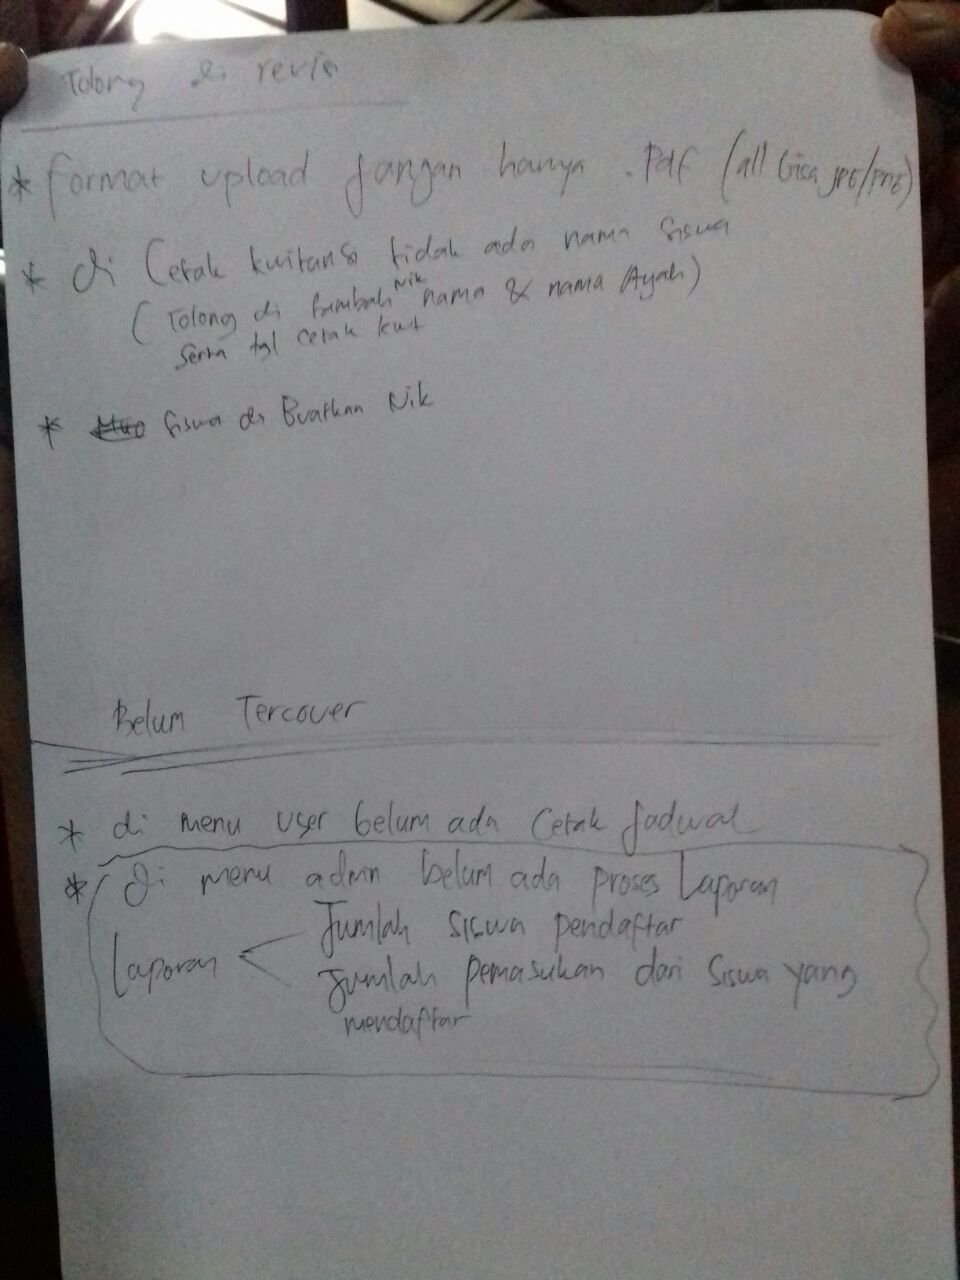 Tolong di revisi
* format upload jangan hanya .Pdf (all bisa JPG/PNG)
* di Cetak kwitansi tidak ada nama siswa
(Tolong di tambah Nik nama & nama Ayah)
serta tgl cetak kwt
* Siswa di Buatkan Nik
Belum Tercover
* di menu user belum ada Cetak Jadwal
* di menu admin belum ada proses Laporan
Laporan < Jumlah siswa pendaftar
Jumlah pemasukan dari siswa yang
mendaftar